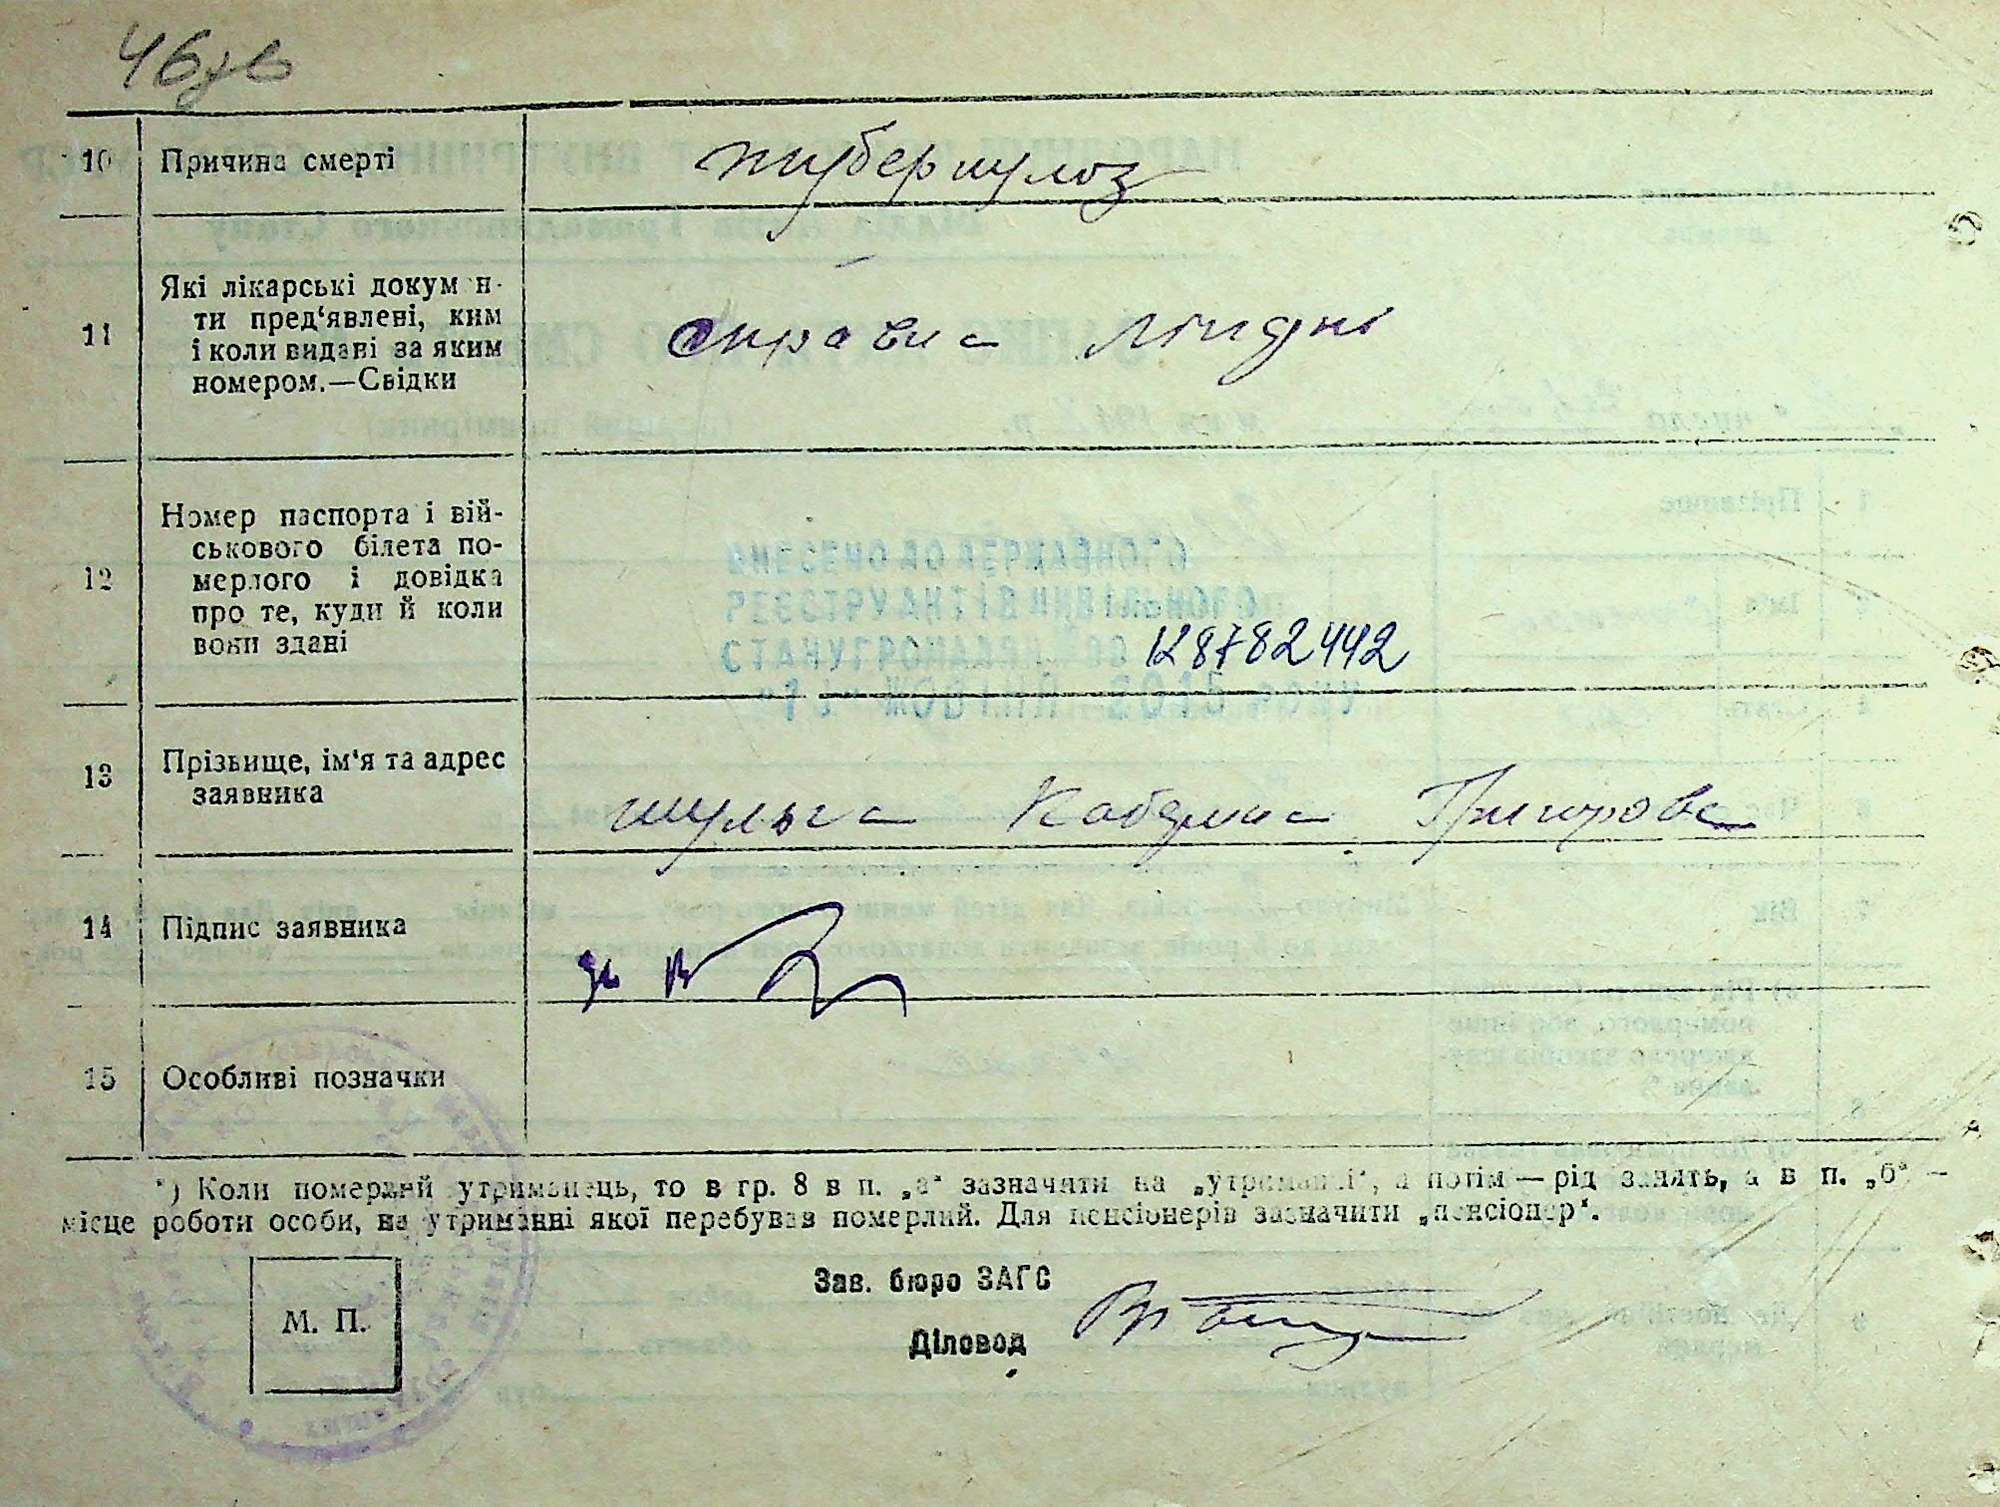 46зв
10 Причина смерті
туберкулоз
11 Які лікарські докум н-
ти пред‘явлені, ким
і коли видані за яким
номером.—Свідки
справка
12 Номер паспорта і вій-
ськового білета по-
мерлого і довідка
про те, куди й коли
вони здані
ВНЕСЕНО ДО ДЕРЖАВНОГО
РЕЄСТРУ АКТІВ ЦИВІЛЬНОГО
СТАНУ ГРОМАДЯН
128782442
ЖОВТНЯ 2015 року
13 Прізвище, ім‘я та адрес
заявника
шульга
14 Підпис заявника
15 Особливі позначки
*) Коли померлий утриманець, то в гр. 8 в п. „а“ зазначити на „утриманні“, а потім — рід занять, а в п. „б“ —
місце роботи особи, на утриманні якої перебував померлий. Для пенсіонерів зазначити „пенсіонер“.
М. П.
Зав. бюро ЗАГС
Діловод